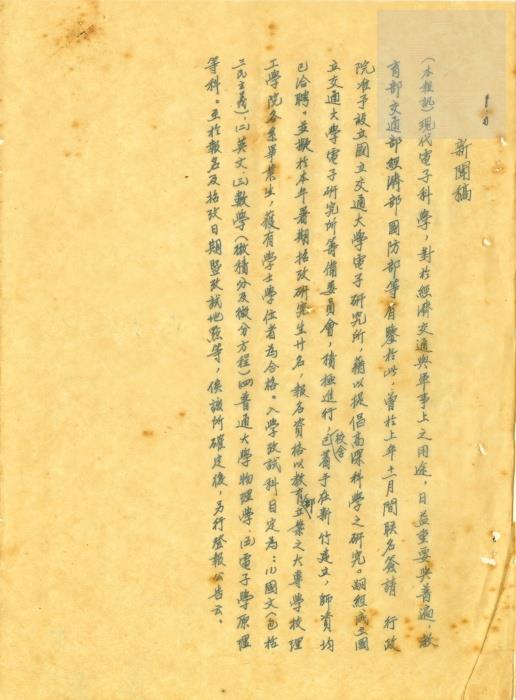 新聞稿
(本報訊)現代電子科學,對於經濟交通與軍事上之用途,日益重要與普遍,故
育部交通部經濟部國防部等有鑒於此,曾於上年十一月間联名簽請 行政
院准予設立國立交通大學電子研究所,藉以提倡高深科學之研究。嗣經成立國
立交通大學電子研究所籌備委員會,積極進行,校舍已着手在新竹建立,師資均
已洽聘。並擬於本年暑期招攷研究生廿名,報名資格以教育部立案之大專學校理
工學院各系畢業生,獲有學士學位者為合格。入學攷試科目定為:(1)國文(包括
三民主義),(二)英文,(三)數學(微積分及微分方程)(四)普通大學物理學,(五)電子學原理
等科。至於報名及招攷日期暨攷試地點等,俟該所確定後,另行登報公告云。